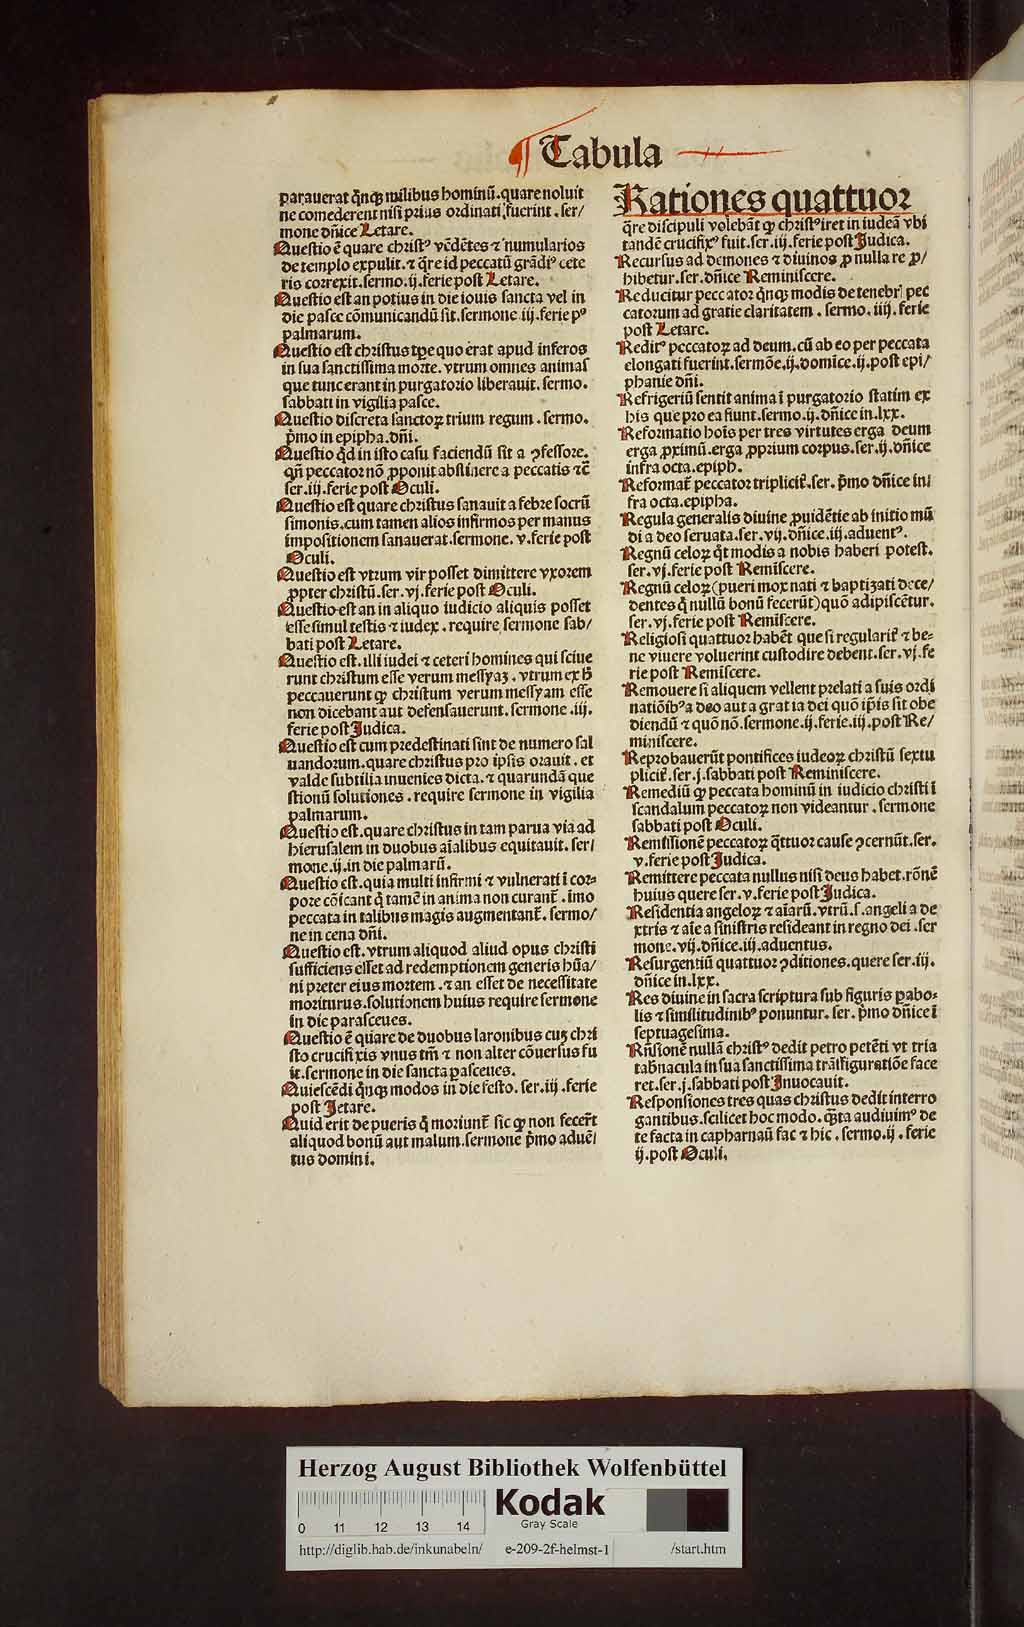 ¶ Tabula
parauerat q̄nq̄ milibus hominū. quare noluit
ne comederent nisi prius ordinati fuerint . ser/
mone dn̄ice Letare.
Questio ē quare christꝰ vēdētes ⁊ numularios
de templo expulit. ⁊ q̄re id peccatū grādiꝰ cete
ris correxit. sermo. ij. ferie post Letare.
Questio est an potius in die iouis sancta vel in
die pasce cōmunicandū sit. sermone iij. ferie pꝰ
palmarum.
Questio est christus tꝑe quo erat apud inferos
in sua sanctissima morte. vtrum omnes animas
que tunc erant in purgatorio liberauit. sermo.
sabbati in vigilia pasce.
Questio discreta sanctoꝝ trium regum . sermo.
p̄mo in epipha. dn̄i.
Questio qd̄ in isto casu faciendū sit a ꝯfessore.
qn̄ peccator nō ꝓponit abstinere a peccatis ⁊c̄
ser. iij. ferie post Oculi.
Questio est quare christus sanauit a febre socrū
simonis. cum tamen alios infirmos per manus
impositionem sanauerat. sermone. v. ferie post
Oculi.
Questio est vtrum vir posset dimittere vxorem
ꝓpter christū. ser. vj. ferie post Oculi.
Questio est an in aliquo iudicio aliquis posset
esse simul testis ⁊ iudex . require sermone sab/
bati post Letare.
Questio est. illi iudei ⁊ ceteri homines qui sciue
runt christum esse verum messyaꝫ . vtrum ex h̄
peccauerunt ꝙ christum verum messyam esse
non dicebant aut defensauerunt. sermone .iij.
ferie post Judica.
Questio est cum predestinati sint de numero sal
uandorum. quare christus pro ip̄sis orauit . et
valde subtilia inuenies dicta. ⁊ quarundā que
stionū solutiones . require sermone in vigilia
palmarum.
Questio est. quare christus in tam parua via ad
hierusalem in duobus aīalibus equitauit. ser/
mone. ij. in die palmarū.
Questio est. quia multi infirmi ⁊ vulnerati ī cor-
pore cōicant q̄ tamē in anima non curant̄ . imo
peccata in talibus magis augmentant̄. sermo/
ne in cena dn̄i.
Questio est. vtrum aliquod aliud opus christi
sufficiens esset ad redemptionem generis hūa/
ni preter eius mortem . ⁊ an esset de necessitate
moriturus. solutionem huius require sermone
in die parasceues.
Questio ē quare de duobus latronibus cuꝫ chri
sto crucifixis vnus tm̄ ⁊ non alter cōuersus fu
it. sermone in die sancta pasceues.
Quiescēdi q̄nq̄ modos in die festo. ser. iij . ferie
post Jetare.
Quid erit de pueris q̄ moriunt̄ sic ꝙ non fecer̄t
aliquod bonū aut malum. sermone p̄mo aduē/
tus domini.
Rationes quattuor
q̄re discipuli volebāt ꝙ christꝰ iret in iudeā vbi
tandē crucifixꝰ fuit. ser. iij. ferie post Judica.
Recursus ad demones ⁊ diuinos ꝓ nulla re ꝓ/
hibetur. ser. dn̄ice Reminiscere.
Reducitur peccator q̄nq̄ modis de tenebr̄ pec
catorum ad gratie claritatem . sermo. iiij. ferie
post Letare.
Reditꝰ peccatoꝝ ad deum. cū ab eo per peccata
elongati fuerint. sermōe. ij. domīce. ij. post epi/
phanie dn̄i.
Refrigeriū sentit anima ī purgatorio statim ex
his que pro ea fiunt. sermo. ij. dn̄ice in. lxx.
Reformatio hoīs per tres virtutes erga deum
erga ꝓximū. erga ꝓprium corpus. ser. ij. dn̄ice
infra octa. epiph.
Reformat̄ peccator triplicit̄. ser. p̄mo dn̄ice in/
fra octa. epipha.
Regula generalis diuine ꝓuidētie ab initio mū
di a deo seruata. ser. vij. dn̄ice. iij. aduentꝰ.
Regnū celoꝝ q̄t modis a nobis haberi potest.
ser. vj. ferie post Remiscere.
Regnū celoꝝ (pueri mox nati ⁊ baptizati dece/
dentes q̄ nullū bonū fecerūt) quō adipiscētur.
ser. vj. ferie post Remiscere.
Religiosi quattuor habēt que si regularit̄ ⁊ be-
ne viuere voluerint custodire debent. ser. vj. fe
rie post Remiscere.
Remouere si aliquem vellent prelati a suis ordi
natiōibꝰ a deo aut a gratia dei quō ip̄is sit obe
diendū ⁊ quō nō. sermone. ij. ferie. iij. post Re/
miniscere.
Reprobauerūt pontifices iudeoꝝ christū sextu
plicit̄. ser. j. sabbati post Reminiscere.
Remediū ꝙ peccata hominū in iudicio christi ī
scandalum peccatoꝝ non videantur . sermone
sabbati post Oculi.
Remissionē peccatoꝝ q̄ttuor cause ꝯcernūt. ser.
v. ferie post Judica.
Remittere peccata nullus nisi deus habet. rōnē
huius quere ser. v. ferie post Judica.
Residentia angeloꝝ ⁊ aīarū. vtrū. s. angeli a de
xtris ⁊ aīe a sinistris resideant in regno dei . ser
mone. vij. dn̄ice. iij. aduentus.
Resurgentiū quattuor ꝯditiones. quere ser. iij.
dn̄ice in. lxx.
Res diuine in sacra scriptura sub figuris ꝑabo-
lis ⁊ similitudinibꝰ ponuntur. ser. p̄mo dn̄ice ī
septuagesima.
Rn̄sionē nullā christꝰ dedit petro petēti vt tria
tabnacula in sua sanctissima trāsfiguratiōe face
ret. ser. j. sabbati post Inuocauit.
Responsiones tres quas christus dedit interro
gantibus. scilicet hoc modo. q̄ta audiuimꝰ de
te facta in capharnaū fac ⁊ hic . sermo. ij . ferie
ij. post Oculi.
Herzog August Bibliothek Wolfenbüttel
Kodak
Gray Scale
0 11 12 13 14
http://diglib.hab.de/inkunabeln/ e-209-2f-helmst-1 /start.htm